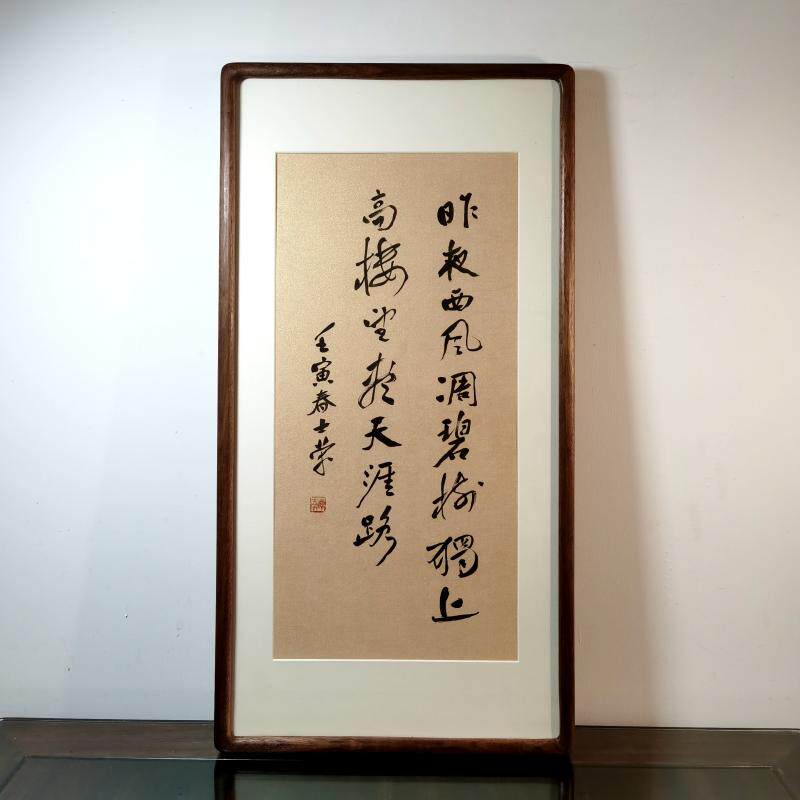 昨夜西风凋碧树獨上
高楼望尽天涯路
壬寅春士荣